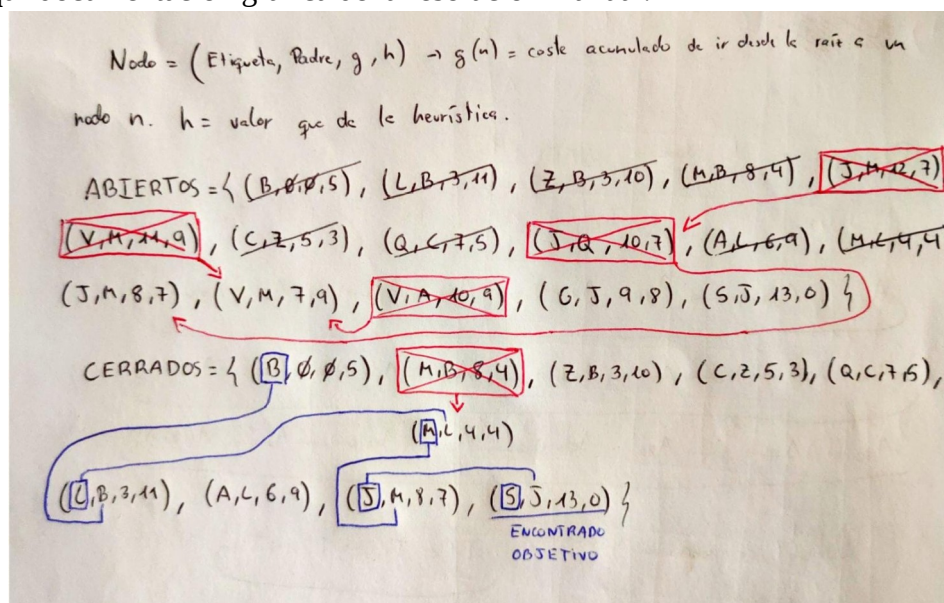 Nodo = (Etiqueta, Padre, g, h) → g(n) = coste acumulado de ir desde la raíz a un
nodo n. h = valor que da la heurística.
ABIERTOS = { (B,∅,∅,5), (L,B,3,11), (Z,B,3,10), (M,B,8,4), (J,M,12,7)
(V,M,11,9), (C,Z,5,3), (Q,C,7,5), (J,Q,10,7), (A,L,6,9), (M,L,4,4
(J,M,8,7), (V,M,7,9), (V,A,10,9), (G,J,9,8), (S,J,13,0) }
CERRADOS = { (B,∅,∅,5), (M,B,8,4), (Z,B,3,10), (C,Z,5,3), (Q,C,7,5),
(M,L,4,4)
(L,B,3,11), (A,L,6,9), (J,M,8,7), (S,J,13,0) }
ENCONTRADO
OBJETIVO